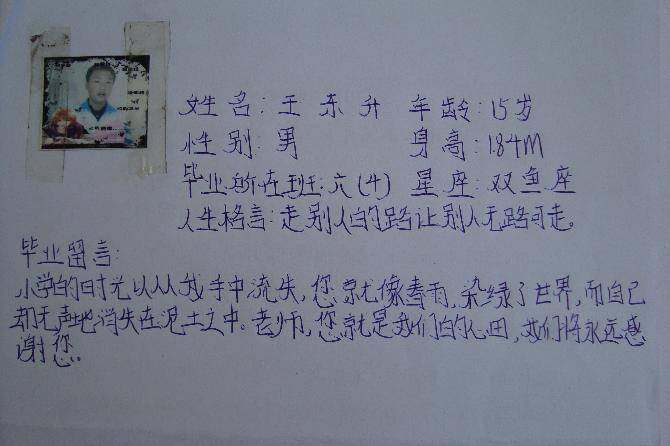 姓名:王东升 年龄:15岁
性别:男 身高:1.84M
毕业前所在班:六(4) 星座:双鱼座
人生格言:走别人的路让别人无路可走。
毕业留言:
小学的时光以从我手中流失,您就像春雨,染绿了世界,而自己
却无声地消失在泥土之中。老师,您就是我们的心田,我们将永远感
谢您。